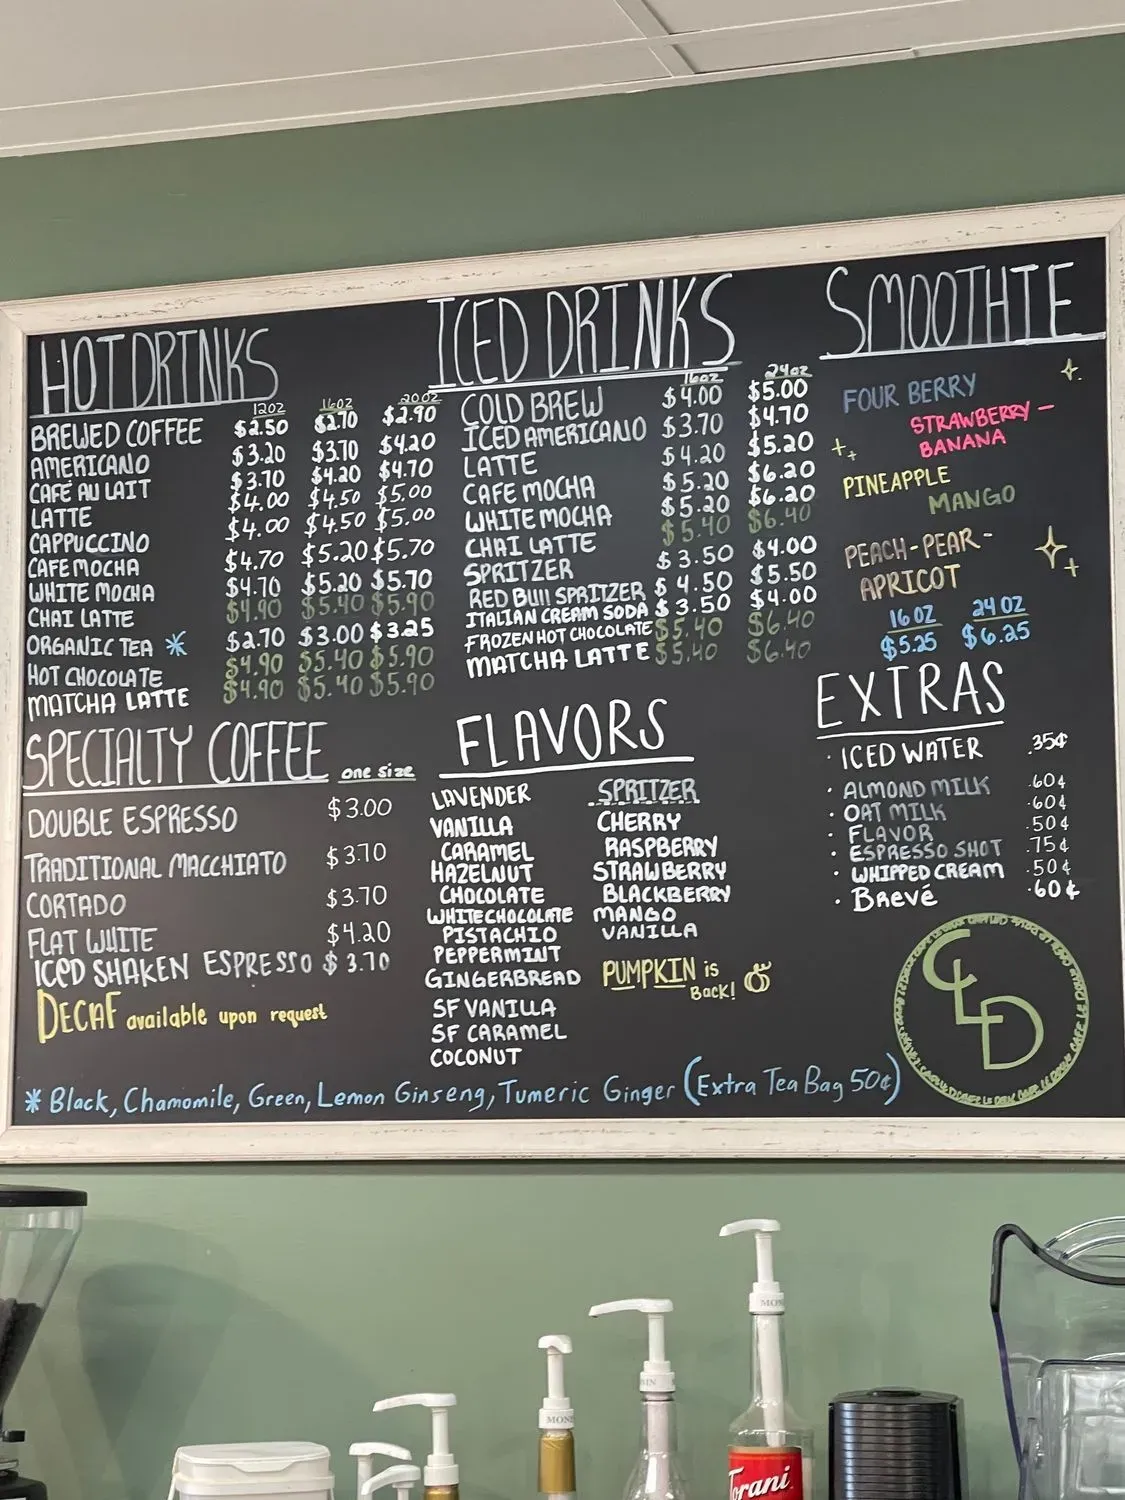 HOT DRINKS
12OZ 16OZ 20OZ
BREWED COFFEE $2.50 $2.70 $2.90
AMERICANO $3.20 $3.70 $4.20
CAFÉ AU LAIT $3.70 $4.20 $4.70
LATTE $4.00 $4.50 $5.00
CAPPUCCINO $4.00 $4.50 $5.00
CAFE MOCHA $4.70 $5.20 $5.70
WHITE MOCHA $4.70 $5.20 $5.70
CHAI LATTE $4.90 $5.40 $5.90
ORGANIC TEA * $2.70 $3.00 $3.25
HOT CHOCOLATE $4.90 $5.40 $5.90
MATCHA LATTE $4.90 $5.40 $5.90
SPECIALTY COFFEE one size
DOUBLE ESPRESSO $3.00
TRADITIONAL MACCHIATO $3.70
CORTADO $3.70
FLAT WHITE $4.20
ICED SHAKEN ESPRESSO $3.70
DECAF available upon request
ICED DRINKS
16OZ 24OZ
COLD BREW $4.00 $5.00
ICED AMERICANO $3.70 $4.70
LATTE $4.20 $5.20
CAFE MOCHA $5.20 $6.20
WHITE MOCHA $5.20 $6.20
CHAI LATTE $5.40 $6.40
SPRITZER $3.50 $4.00
RED BUll SPRITZER $4.50 $5.50
ITALIAN CREAM SODA $3.50 $4.00
FROZEN HOT CHOCOLATE $5.40 $6.40
MATCHA LATTE $5.40 $6.40
FLAVORS
LAVENDER
VANILLA
CARAMEL
HAZELNUT
CHOCOLATE
WHITE CHOCOLATE
PISTACHIO
PEPPERMINT
GINGERBREAD
SF VANILLA
SF CARAMEL
COCONUT
SPRITZER
CHERRY
RASPBERRY
STRAWBERRY
BLACKBERRY
MANGO
VANILLA
PUMPKIN is
Back!
SMOOTHIE
FOUR BERRY
STRAWBERRY -
BANANA
PINEAPPLE
MANGO
PEACH-PEAR-
APRICOT
16 OZ 24 OZ
$5.25 $6.25
EXTRAS
· ICED WATER .35¢
· ALMOND MILK .60¢
· OAT MILK .60¢
· FLAVOR .50¢
· ESPRESSO SHOT .75¢
· WHIPPED CREAM .50¢
· Brevé .60¢
CLD
* Black, Chamomile, Green, Lemon Ginseng, Tumeric Ginger (Extra Tea Bag 50¢)
Torani